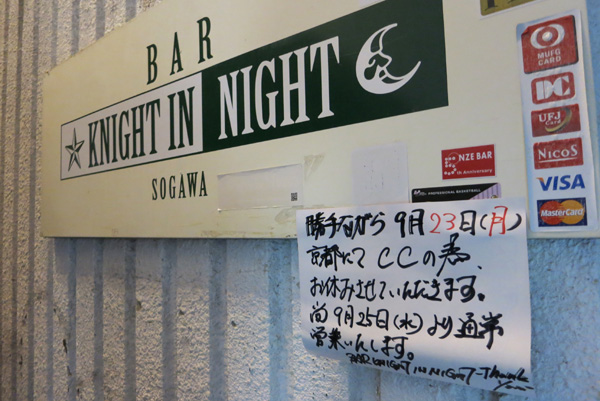 BAR
KNIGHT IN NIGHT
SOGAWA
MUFG CARD
DC
UFJ Card
NICOS
VISA
MasterCard
NZE BAR
5th Anniversary
PROFESSIONAL BASKETBALL
勝手ながら9月23日(月)
京都にてCCの為、
お休みさせていただきます。
尚9月25日(水)より通常
営業いたします。
BAR KNIGHT IN NIGHT - Thank
You